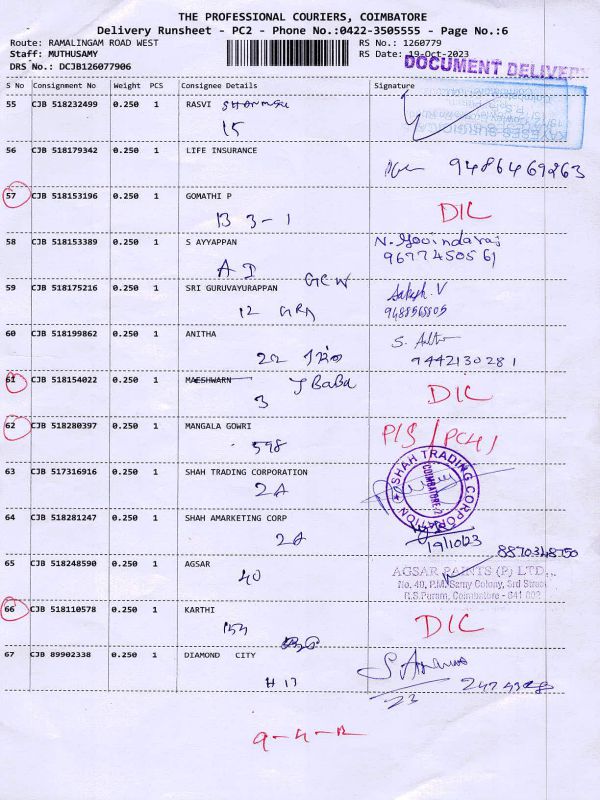 THE PROFESSIONAL COURIERS, COIMBATORE
Delivery Runsheet - PC2 - Phone No.:0422-3505555 - Page No.:6
Route: RAMALINGAM ROAD WEST RS No.: 1260779
Staff: MUTHUSAMY RS Date: 19-Oct-2023
DRS No.: DCJB126077906 DOCUMENT DELIVERY
S No Consignment No Weight PCS Consignee Details Signature
55 CJB 518232499 0.250 1 RASVI
15
56 CJB 518179342 0.250 1 LIFE INSURANCE
9486469263
57 CJB 518153196 0.250 1 GOMATHI P
B 3-1 DIL
58 CJB 518153389 0.250 1 S AYYAPPAN N. Govindaraj
9677450561
59 CJB 518175216 0.250 1 SRI GURUVAYURAPPAN
12 9488568805
60 CJB 518199862 0.250 1 ANITHA
22 9442130281
61 CJB 518154022 0.250 1 MAESHWARN J BaBa
3 DIL
62 CJB 518280397 0.250 1 MANGALA GOWRI
598
63 CJB 517316916 0.250 1 SHAH TRADING CORPORATION SHAH TRADING CORPORATION
2A COIMBATORE-2
64 CJB 518281247 0.250 1 SHAH AMARKETING CORP
2A 19/10/23
8870348750
65 CJB 518248590 0.250 1 AGSAR AGSAR PAINTS (P) LTD.,
40 No. 40, P.M. Samy Colony, 3rd Street
R.S.Puram, Coimbatore - 641 002
66 CJB 518110578 0.250 1 KARTHI
DIL
67 CJB 89902338 0.250 1 DIAMOND CITY
H 17
23
9-4-12